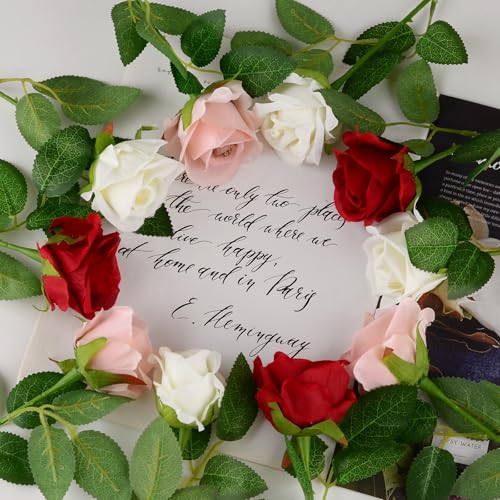 are only two places
the world where we
live happy,
at home and in Paris
E. Hemingway